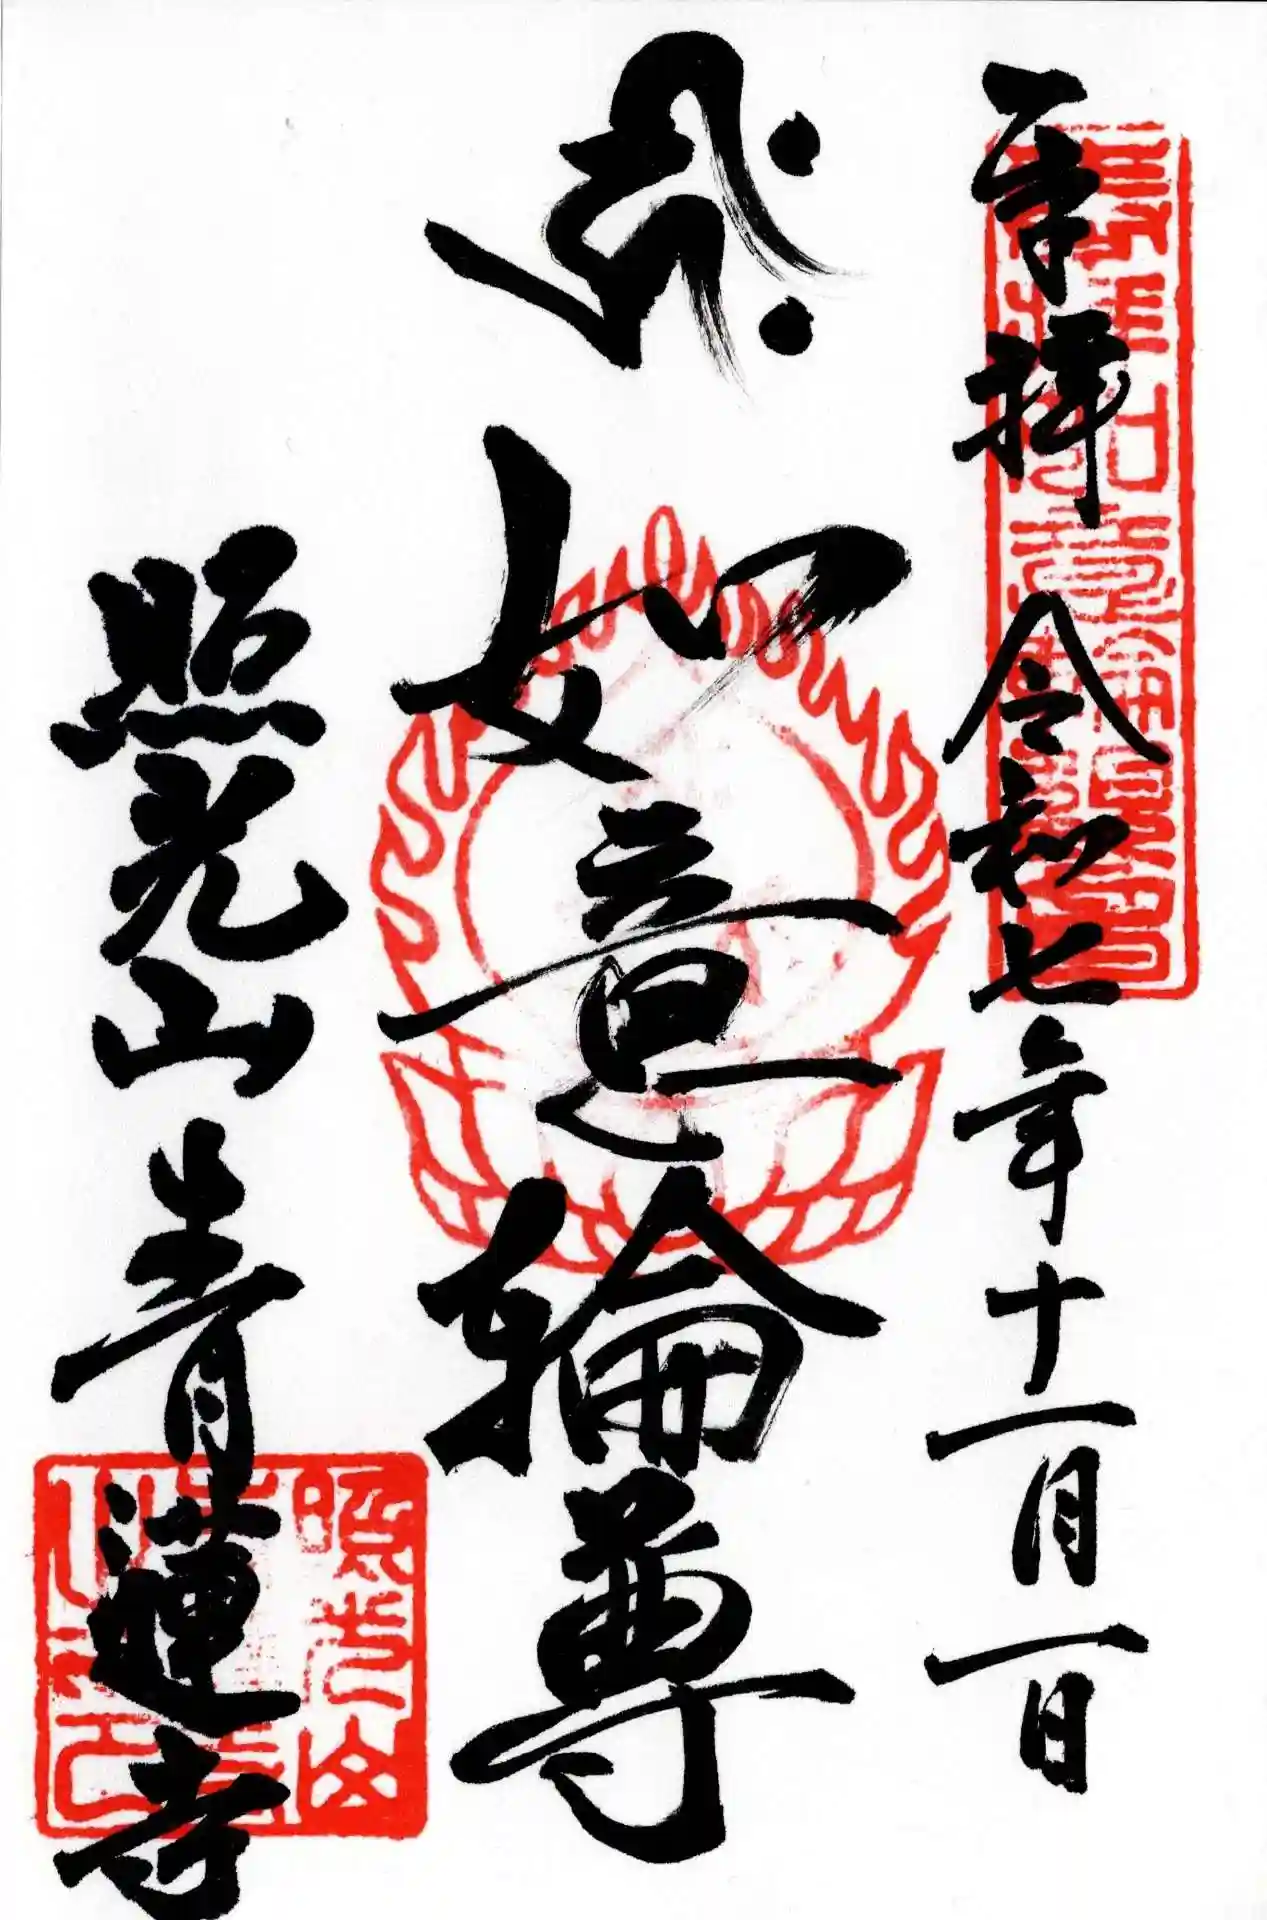 奉拝 令和七年十一月一日
𑖮𑖿𑖨𑖱𑖾
如意輪尊
照光山 青蓮寺
照光山